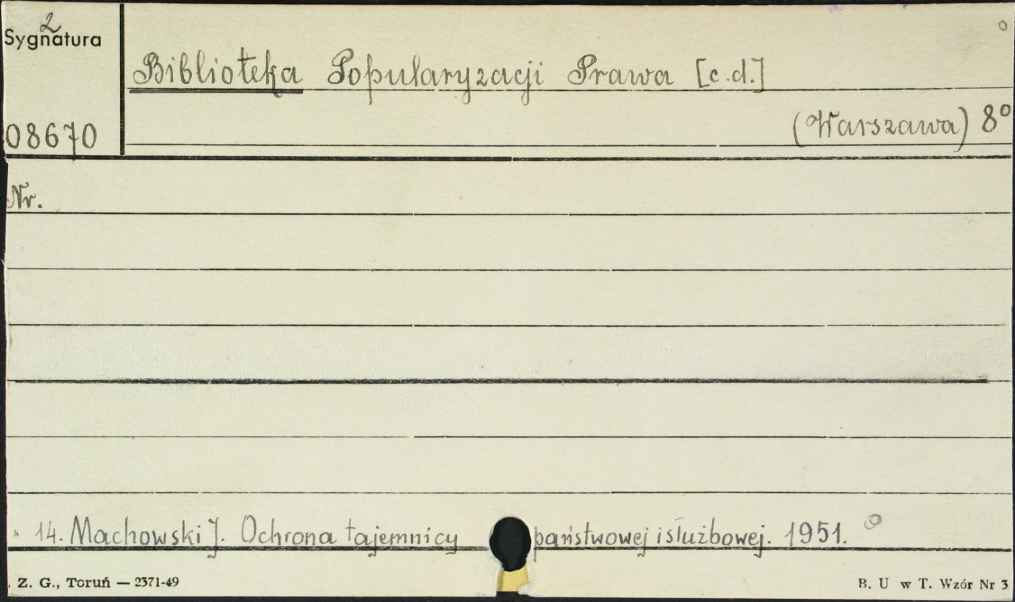 2
Sygnatura
Biblioteka Popularyzacji Prawa [c.d.]
08670
(Warszawa) 8°
Nr.
14. Machowski J. Ochrona tajemnicy państwowej i służbowej. 1951.
. Z. G., Toruń — 2371-49
B. U w T. Wzór Nr 3